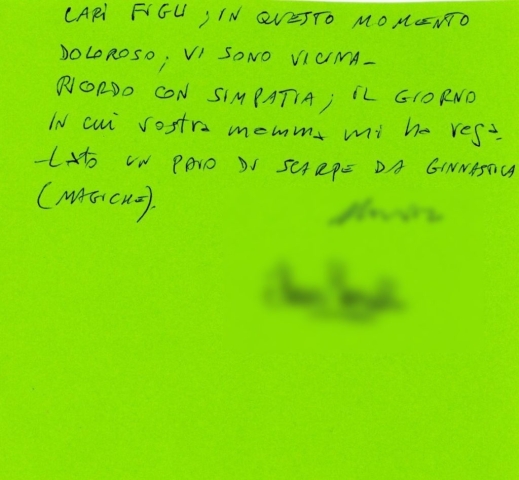 CARI FIGLI ; IN QUESTO MOMENTO
DOLOROSO, VI SONO VICINA_
RICORDO CON SIMPATIA, IL GIORNO
IN cui vostra mamma mi ha rega-
-lato UN PAIO DI SCARPE DA GINNASTICA
(MAGICHE).